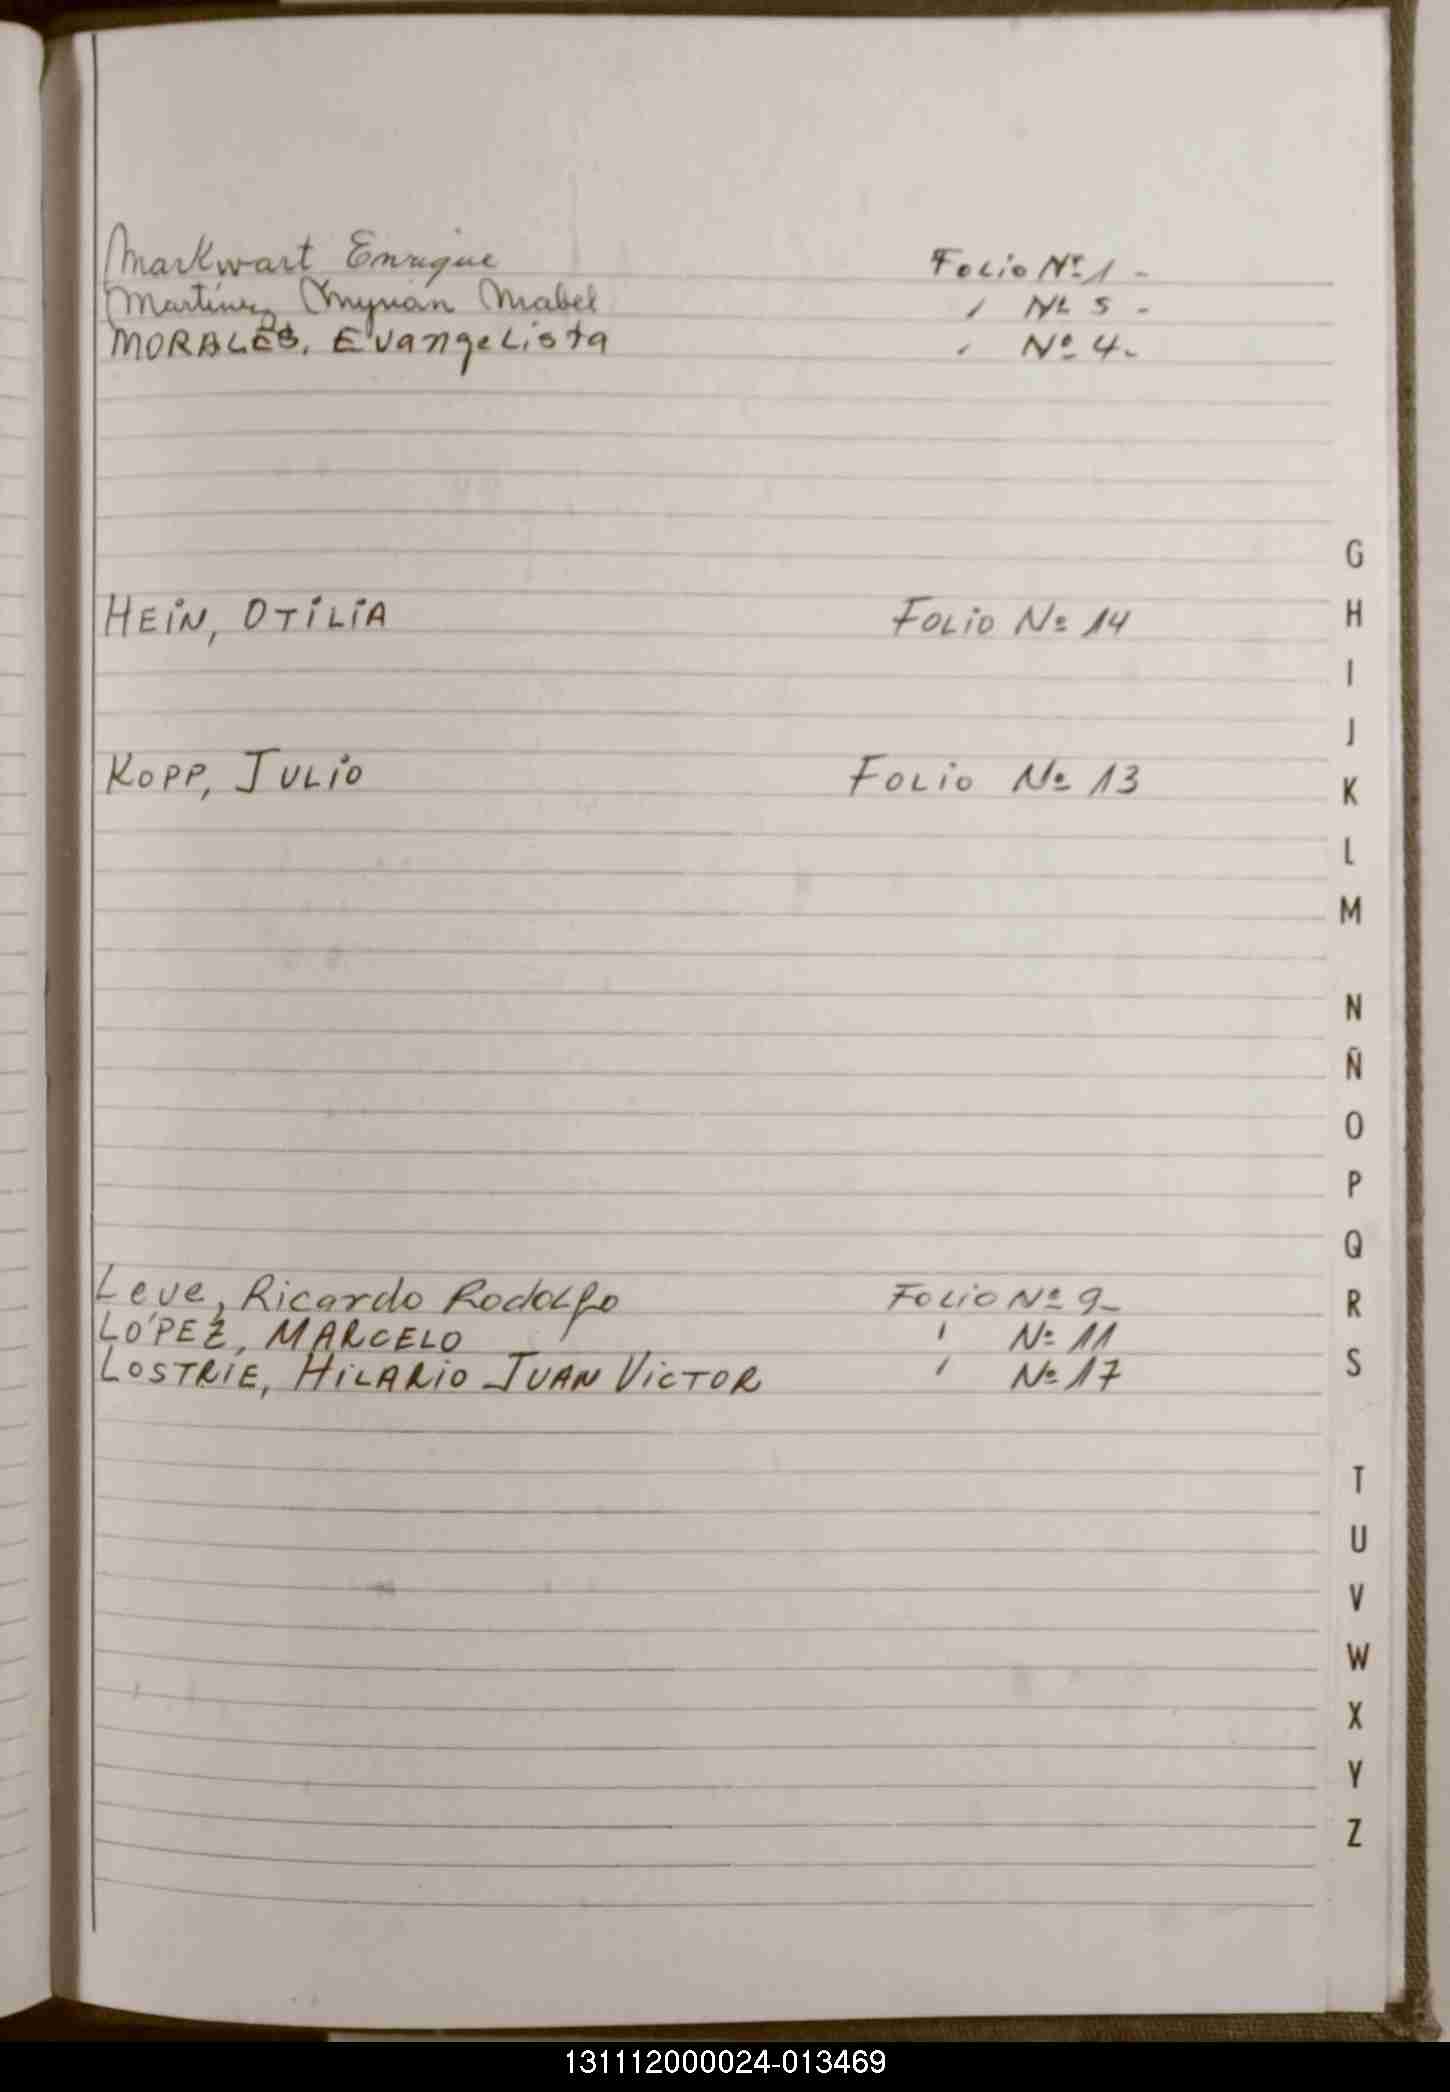 Markwart Enrique Folio Nº 1 -
Martinez Myrian Mabel " Nº 5 -
MORALES, Evangelista " Nº 4 -
G
HEIN, OTILIA Folio Nº 14
H
I
J
KOPP, JULIO Folio Nº 13
K
L
M
N
Ñ
O
P
Q
Leve, Ricardo Rodolfo Folio Nº 9 -
R
LÓPEZ, MARCELO " Nº 11
LOSTRIE, HILARIO JUAN VICTOR " Nº 17
S
T
U
V
W
X
Y
Z
131112000024-013469